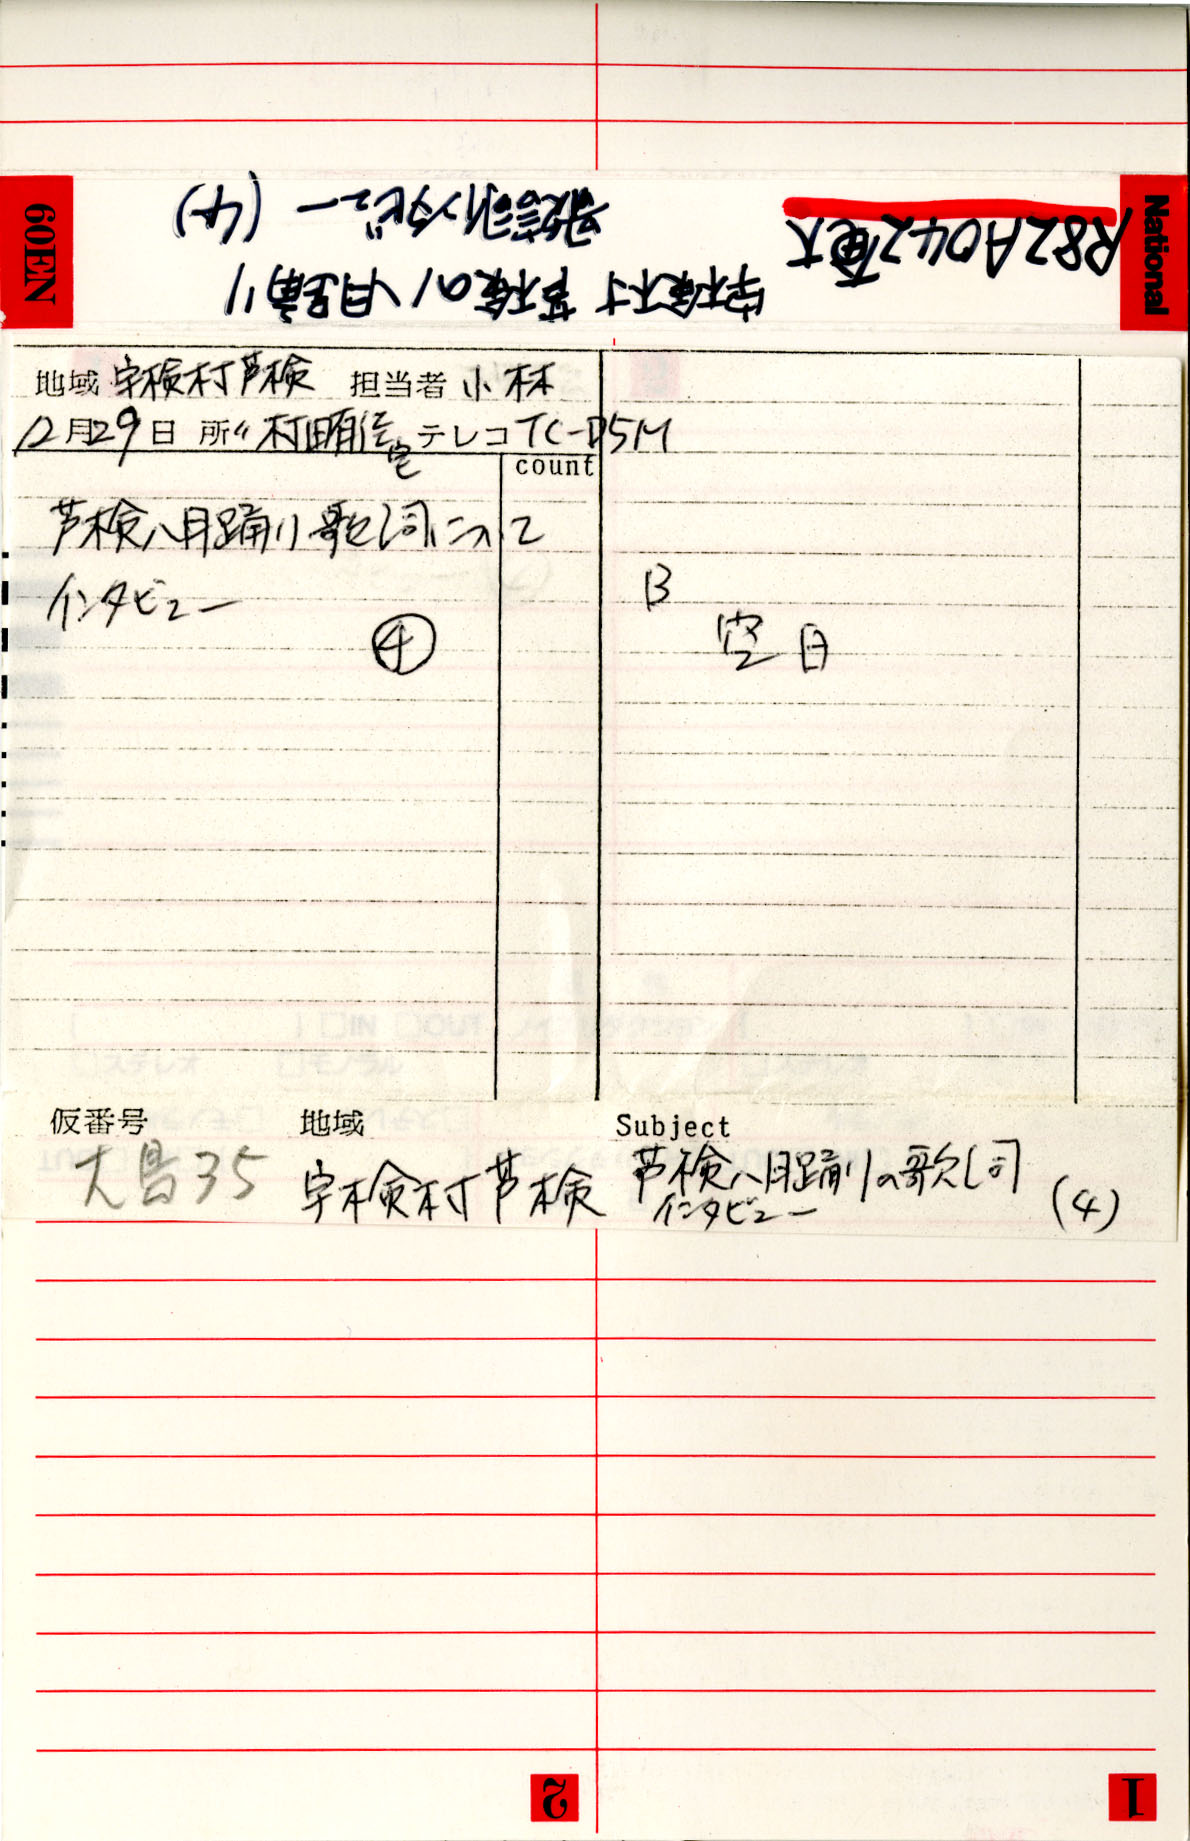 National
R82A042 奄大
宇検村 芦検の八月踊り
歌詞インタビュー (4)
60EN
地域 宇検村芦検 担当者 小林
12月29日 所 村田 宅 テレコ TC-D5M
count
芦検八月踊り歌詞について
インタビュー
④
B
空白
仮番号 地域 Subject
大島35 宇検村芦検 芦検八月踊りの歌詞
インタビュー (4)
2 1